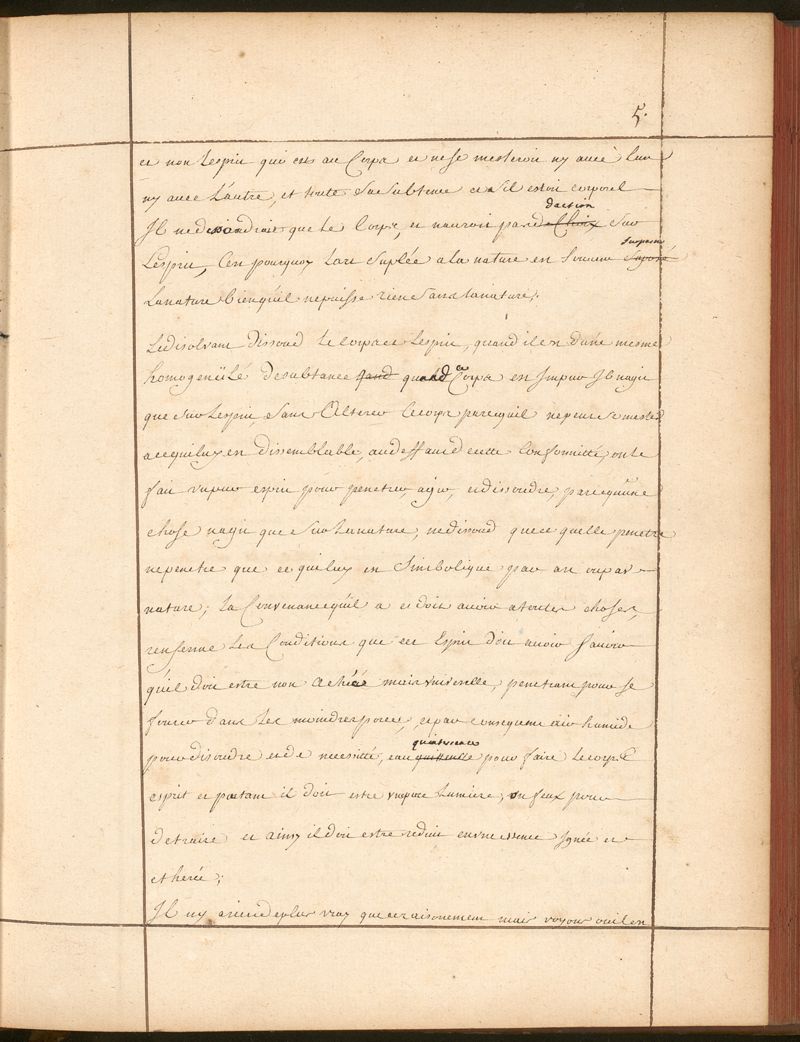 5.
et non Lesprit qui est au Corps et ne se mesleroit ny avec Lun
ny avec L'autre, et toute Sa substance et s'il estoit corporel
d'action
Il ne dissoudroit que le Corps, et nauroit pas de Choix Sur
suspend
Lesprit, C'en pourquoy Lart Suplée a la nature en
La nature bien quil ne puisse rien Sans la nature;
Le disolvant dissoud le corps et Lesprit, quand il en d'une mesme
homogenëité de substance quand quand ce Corps en Impur Il nagit
que Sur Lesprit, Sans Alterer le corps parcequil ne peut se mesler
a ce qui luy en dissemblable, au deffaut de cette Conformitté, on le
fait vapeur esprit pour penetrer, agir, et dissoudre, parce qu'une
chose nagit que Sur La nature, ne dissoud que ce quelle penetre
ne penetre que ce qui luy en Simbolique par art ou par
nature; La Convenance qu'il a et doit avoir a toutes choses,
renferme Les Conditions que cet Esprit doit avoir Scavoir
qu'il doit estre non achéé mais universelle, penetrant pour se
fourer dans Les moindres pores, et par consequent air humide
quintessence
pour disoudre et de necessitté, eau pour faire Le corps E
esprit et partant il doit estre vapeur Lumiere, un feux pour
detruire et ainsy il doit estre reduit en une essence Ignée et
etherée;
Il ny a rien de plus vray que ce raisonement mais voyons ou il en